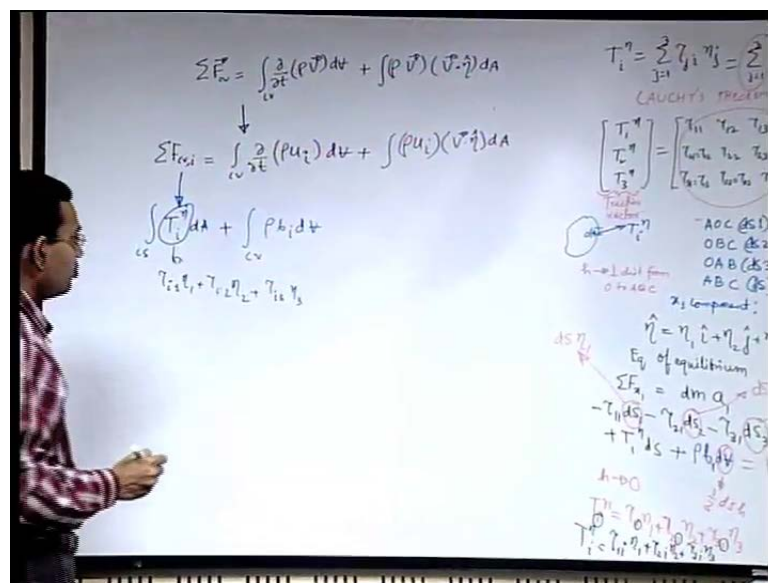 ΣF⃗_cv = ∫_cv ∂/∂t (ρV⃗) dV + ∫(ρV⃗)(V⃗·η̂)dA
↓
ΣF_cv,i = ∫_cv ∂/∂t (ρu_i) dV + ∫(ρu_i)(V⃗·η̂)dA
↓
∫_cs T_i^η dA + ∫_cv ρb_i dV
τ_i1 η_1 + τ_i2 η_2 + τ_i3 η_3
T_i^η = Σ_{j=1}^3 τ_ji η_j = Σ_{j=1}^3
CAUCHY'S THEOREM
[T_1^η T_2^η T_3^η] = [τ_11 τ_12 τ_13
τ_22
Traction vector
T_i^η
-AOC (ds1)
OBC (ds2)
OAB (ds3)
ABC (ds)
h → ⊥ dist from
O to ABC
x_1 component:
η̂ = η_1 î + η_2 ĵ +
Eq of equilibrium
ds η_1
ΣF_x1 = dm a_1
-τ_11 ds_1 - τ_21 ds_2 - τ_31 ds_3
+ T_1^η ds + ρb_1 dV =
h→0
T_1^η = τ_11 η_1 + τ_21 η_2 + τ_31 η_3
T_i^η = τ_1i η_1 + τ_2i η_2 + τ_3i η_3